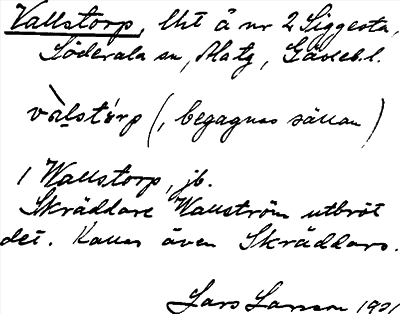 Vallstorp, lht å nr 2 Siggesta,
Söderala sn, Ala tg, Gävleb. l.
vàlstórp (, begagnas sällan)
1 Wallstorp, jb.
Skräddare Wallström utbröt
det. Kallas även Skräddars.
Lars Larsson 1921